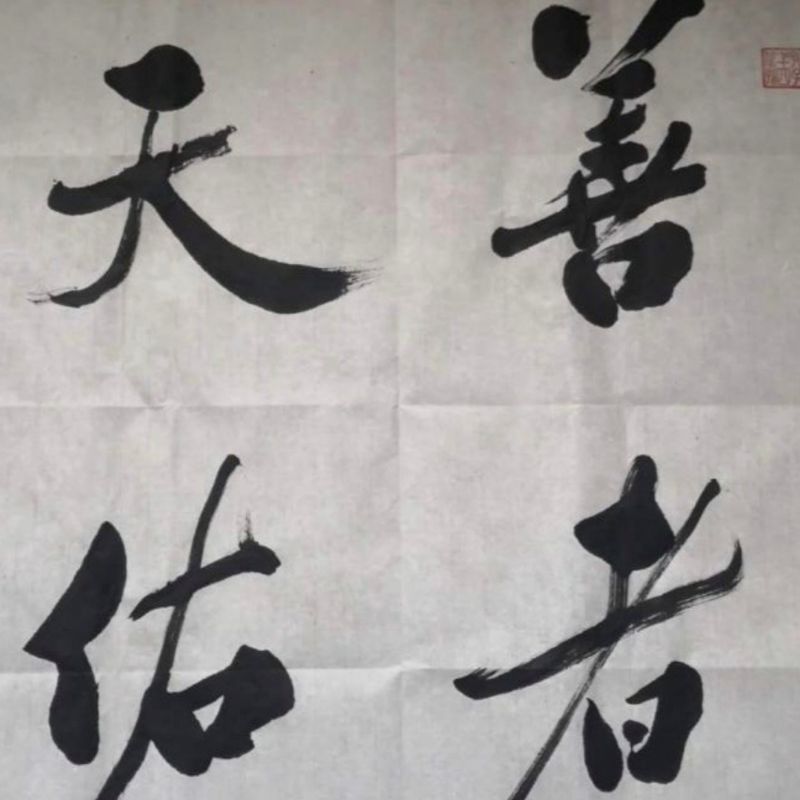 善者
天佑